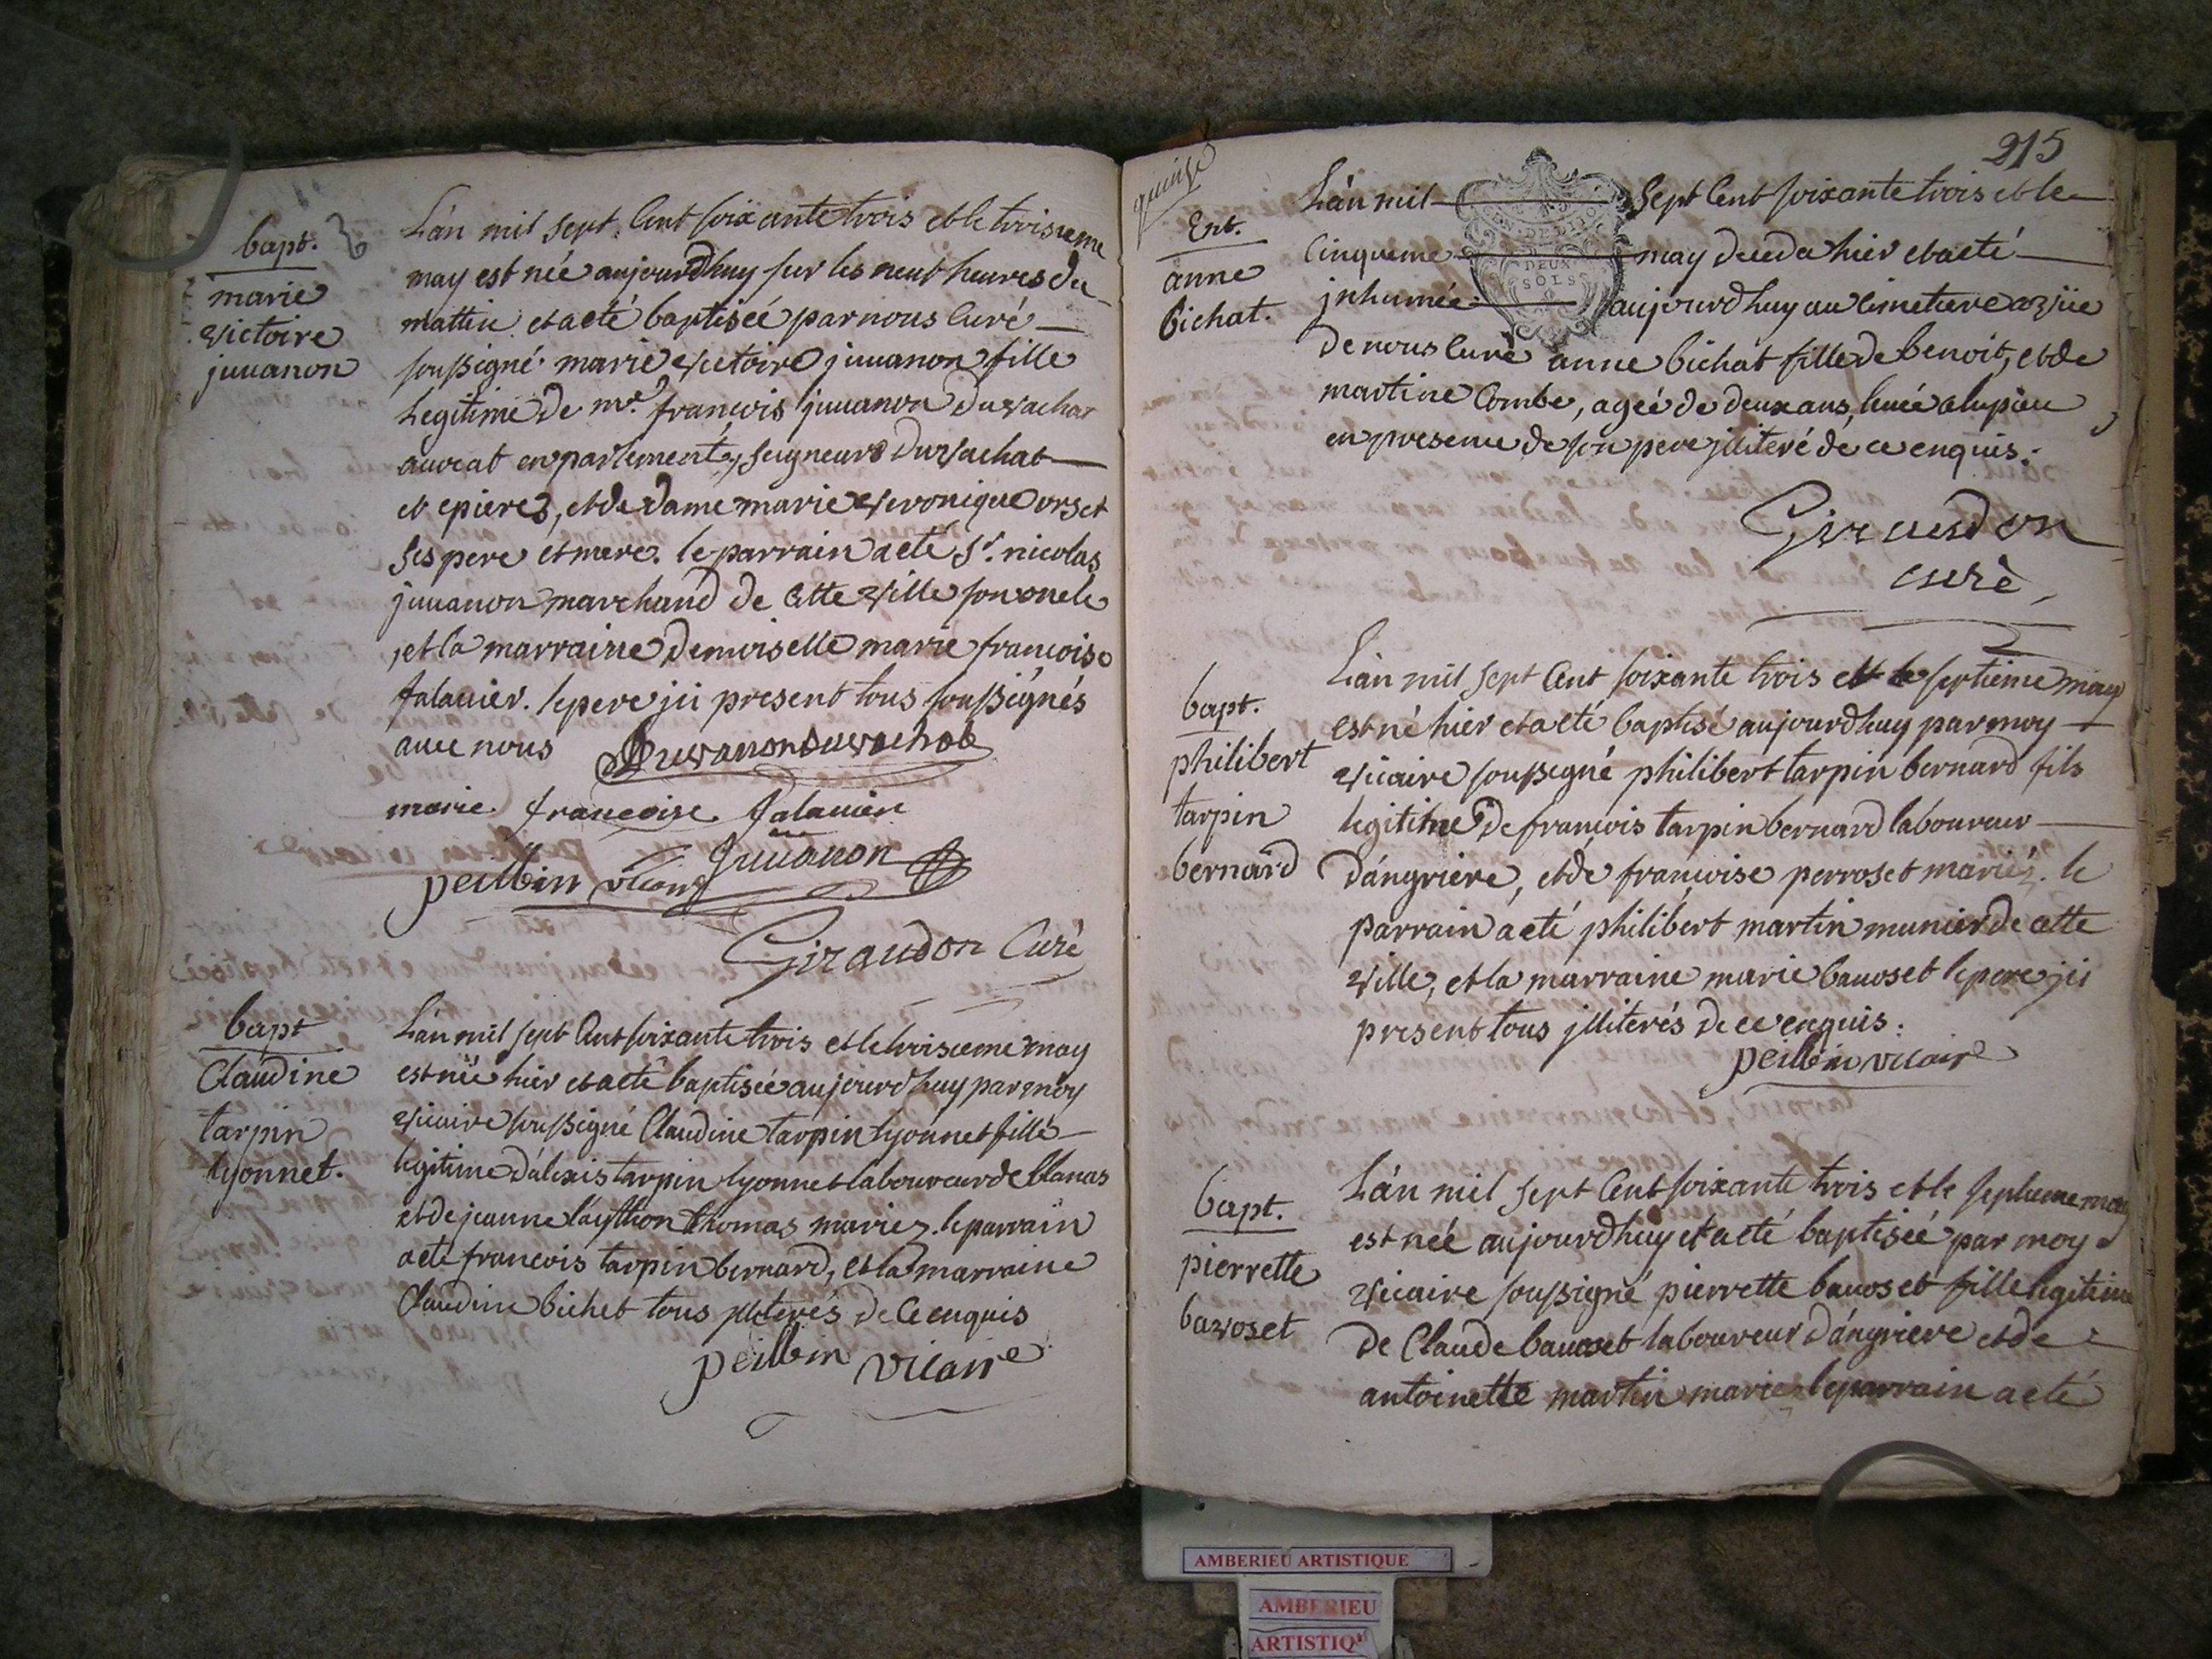 bapt.
marie
victoire
juuanon
L'an mil sept Cent soixante trois et le troisieme
may est née aujourdhuy sur les neuf heures du
mattin et a eté baptiseé par nous Curé
soussigné marie victoire juuanon fille
Legitime de me. francois juuanon duvachat
auocat en parlement, seigneur duvachat
et epierez, et de dame marie veronique orset
ses pere et mere. le parrain a eté Sr. nicolas
juuanon marchand de Cette ville son oncle
, et la marraine demoiselle marie francoise
falauier. le pere jci present tous soussignés
auec nous Juvanon duvachat
marie francoise falauier
juuanon
peilbin vicaire
Giraudon Curé
bapt
Claudine
tarpin
lyonnet.
L'an mil sept Cent soixante trois et le troisieme may
est née hier et a eté baptisée aujourdhuy par moy
vicaire soussigné Claudine tarpin lyonnet fille
legitime d'alexis tarpin lyonnet laboureur de blanas
et de jeanne thomas mariez. le parrain
a eté francois tarpin bernard, et la marraine
Claudine bichet tous jliterés de Ce enquis
peilbin vicaire
quinze
215
Ent.
anne
bichat.
L'an mil sept Cent soixante trois et le
Cinquieme may deceda hier et a eté
jnhumée aujourdhuy au Cimetiere
DEUX
SOLS
de nous Curé anne bichat fille de benoit, et de
martine Combe, ageé de deux ans,
en presence de son pere jlliteré de ce enquis.
Giraudon
curé
bapt.
philibert
tarpin
bernard
L'an mil sept Cent soixante trois et le septieme may
est né hier et a eté baptisé aujourdhuy par moy
vicaire soussigné philibert tarpin bernard fils
legitime de francois tarpin bernard laboureur
d'angriere, et de francoise perroset mariéz. le
parrain a eté philibert martin munier de cette
ville, et la marraine marie bauoset le pere jci
present tous jlliterés de ce enquis.
peilbin vicaire
bapt.
pierrette
bavoset
L'an mil sept Cent soixante trois et le septieme may
est née aujourdhuy et a eté baptiseé par moy
vicaire soussigné pierrette bauoset fille legitime
de Claude bauoset laboureur d'angriere et de
antoinette martin mariez le parrain a eté
AMBERIEU ARTISTIQUE
AMBERIEU
ARTISTIQ